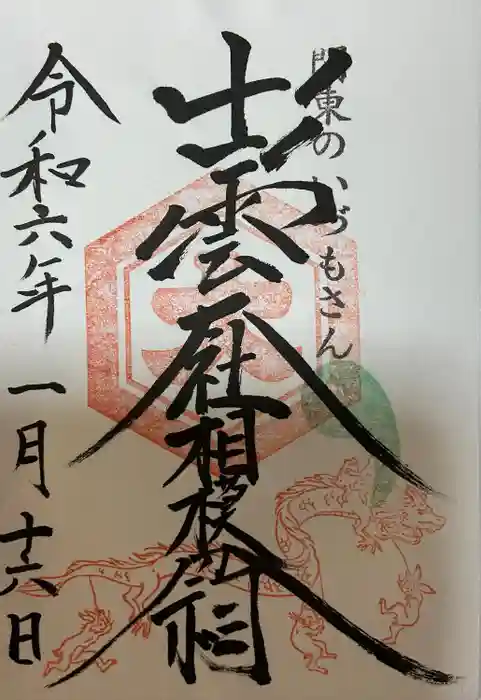 関東のいづもさん
出雲大社相模分祠
令和六年一月十六日